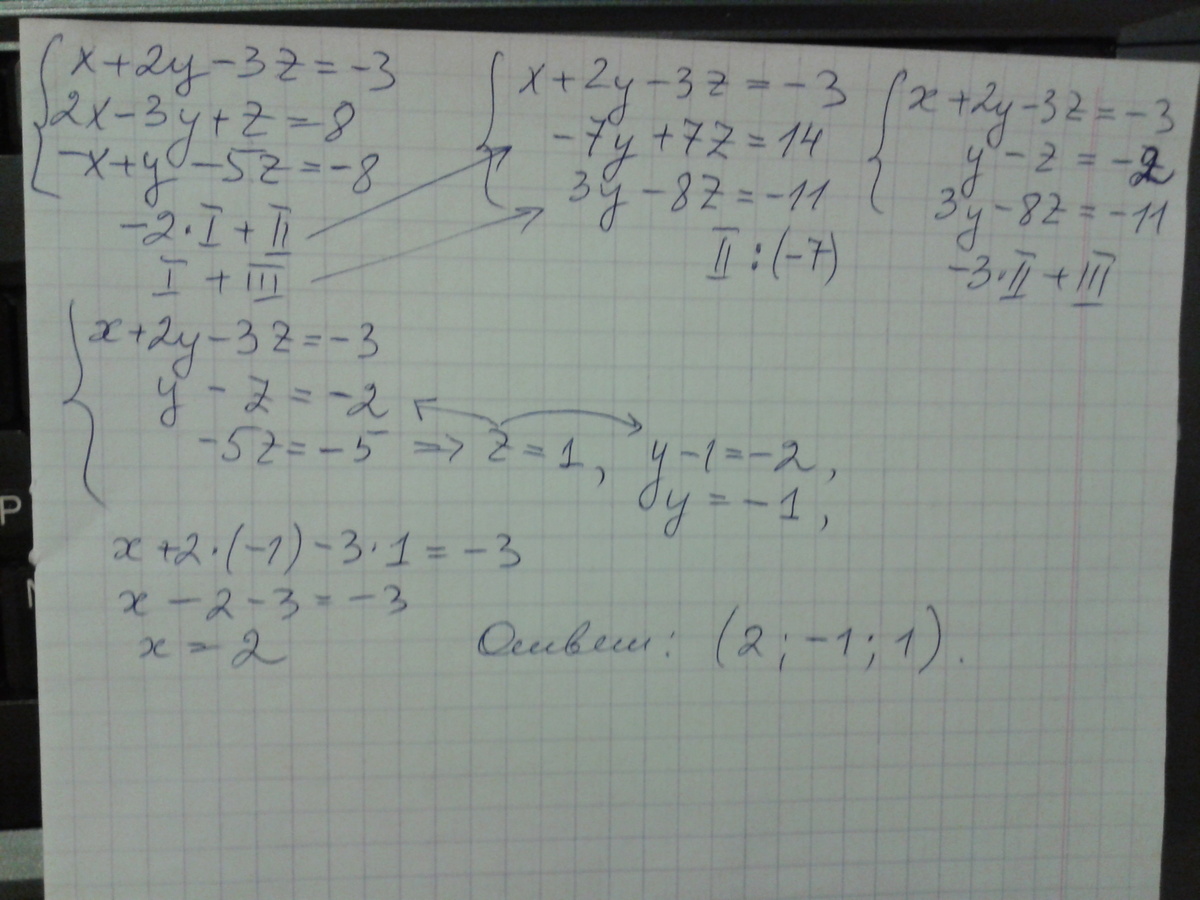 x+2y-3z=-3
2x-3y+z=8
-x+y-5z=-8
-2·I+II
I+III
x+2y-3z=-3
-7y+7z=14
3y-8z=-11
II:(-7)
x+2y-3z=-3
y-z=-2
3y-8z=-11
-3·II+III
x+2y-3z=-3
y-z=-2
-5z=-5 => z=1, y-1=-2,
y=-1,
x+2·(-1)-3·1=-3
x-2-3=-3
x=2
Ответ: (2;-1;1).
P